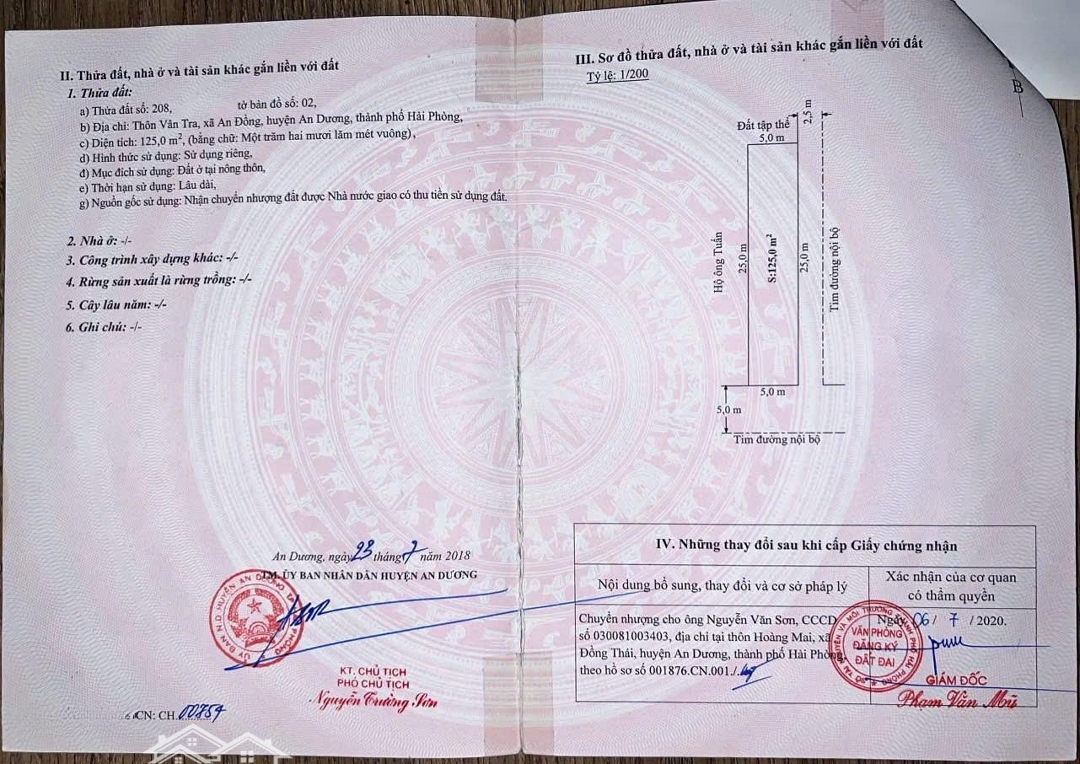 II. Thửa đất, nhà ở và tài sản khác gắn liền với đất
1. Thửa đất:
a) Thửa đất số: 208, tờ bản đồ số: 02,
b) Địa chỉ: Thôn Vân Tra, xã An Đồng, huyện An Dương, thành phố Hải Phòng,
c) Diện tích: 125,0 m², (bằng chữ: Một trăm hai mươi lăm mét vuông),
d) Hình thức sử dụng: Sử dụng riêng,
đ) Mục đích sử dụng: Đất ở tại nông thôn,
e) Thời hạn sử dụng: Lâu dài,
g) Nguồn gốc sử dụng: Nhận chuyển nhượng đất được Nhà nước giao có thu tiền sử dụng đất.
2. Nhà ở: -/-
3. Công trình xây dựng khác: -/-
4. Rừng sản xuất là rừng trồng: -/-
5. Cây lâu năm: -/-
6. Ghi chú: -/-
An Dương, ngày 23 tháng 7 năm 2018
TM. ỦY BAN NHÂN DÂN HUYỆN AN DƯƠNG
KT. CHỦ TỊCH
PHÓ CHỦ TỊCH
Nguyễn Trường Sơn
CN: CH.00754
III. Sơ đồ thửa đất, nhà ở và tài sản khác gắn liền với đất
Tỷ lệ: 1/200
B
Đất tập thể
5,0 m
2,5 m
Hộ ông Tuấn
25,0 m
S:125,0 m²
25,0 m
Tim đường nội bộ
5,0 m
5,0 m
Tim đường nội bộ
IV. Những thay đổi sau khi cấp Giấy chứng nhận
Nội dung bổ sung, thay đổi và cơ sở pháp lý
Xác nhận của cơ quan
có thẩm quyền
Chuyển nhượng cho ông Nguyễn Văn Sơn, CCCD
số 030081003403, địa chỉ tại thôn Hoàng Mai, xã
Đồng Thái, huyện An Dương, thành phố Hải Phòng,
theo hồ sơ số 001876.CN.001./.
Ngày 06/ 7 /2020.
VĂN PHÒNG
ĐĂNG KÝ
ĐẤT ĐAI
GIÁM ĐỐC
Phạm Văn Mỹ